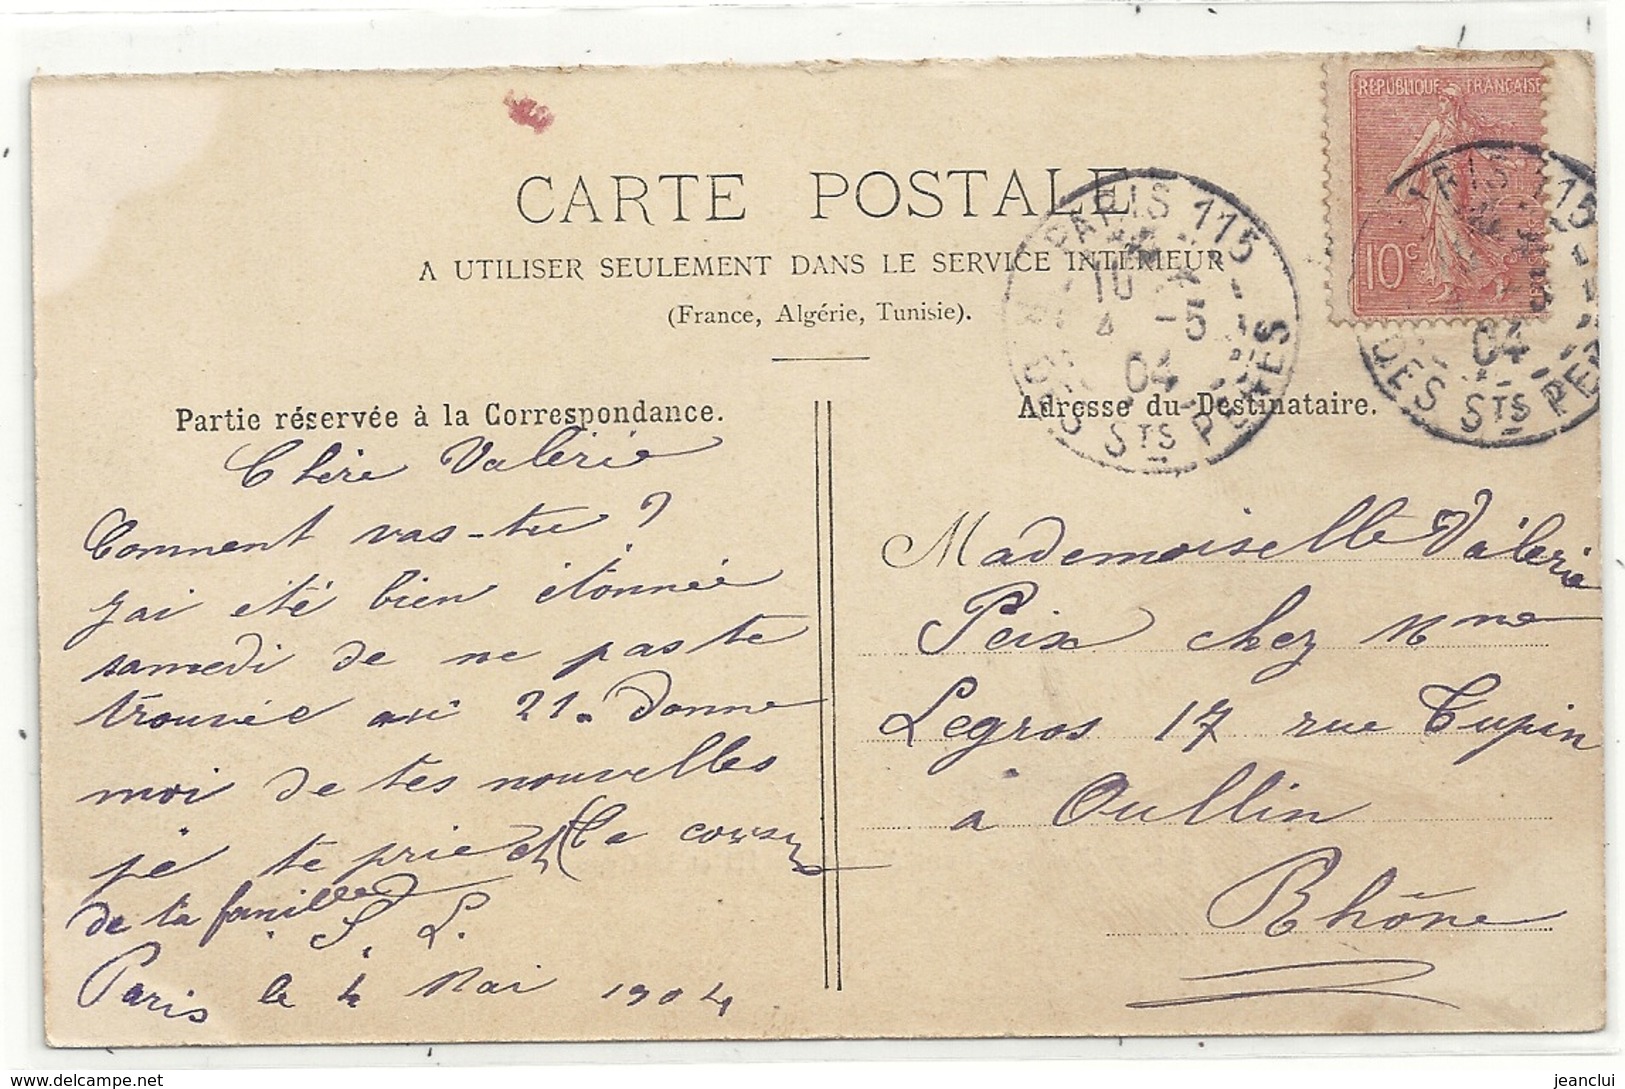 CARTE POSTALE
A UTILISER SEULEMENT DANS LE SERVICE INTÉRIEUR
(France, Algérie, Tunisie).
RÉPUBLIQUE FRANÇAISE
10c
PARIS 115
10
4 -5
04
DES STS PERES
PARIS 115
04
DES STS PE
Partie réservée à la Correspondance.
Chère Valérie
Comment vas-tu ?
j'ai été bien étonnée
samedi de ne pas te
trouvée au 21. donne
moi de tes nouvelles
je te prie et
de ta famille
S. L.
Paris le 4 Mai 1904
Adresse du Destinataire.
Mademoiselle Valérie
Peix chez Mme
Legros 17 rue Tupin
à Oullin
Rhône
delcampe.net
jeanclui